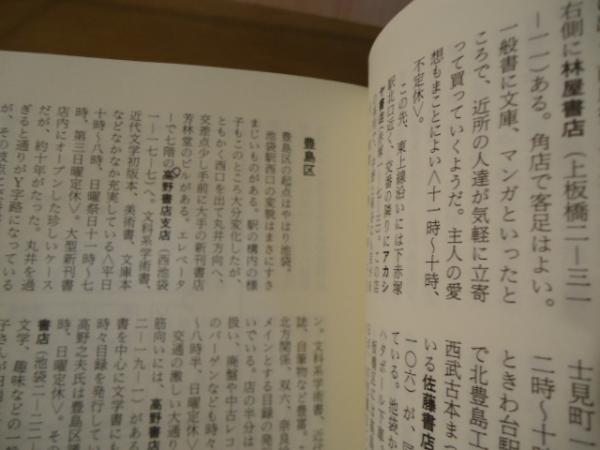 右側に林屋書店（上板橋二―三一
―一一）ある。角店で客足はよい。
一般書に文庫、マンガといったと
ころで、近所の人達が気軽に立寄
って買っていくようだ。主人の愛
想もまことによい〈十一時〜十時、
不定休〉。
この先、東上線沿いには下赤塚
駅北口近く、交番の隣りにアカシ
士見町一
二時〜十時
ときわ台駅
で北豊島工
西武古本まつ
いる佐藤書店
一〇六）が、
ている。池袋か
豊島区
豊島区の起点はやはり池袋。
池袋駅西口の変貌はまさにすさ
まじいものがある。駅の構内の様
子もこのところ大分変化したが、
ともかく西口を出て丸井方向へ、
交差点少し手前に大手の新刊書店
芳林堂のビルがある。エレベータ
ーで七階の高野書店支店（西池袋
一―一七―七）へ。文科系学術書、
近代文学初版本、美術書、文庫本
などなかなか充実している〈平日
十時〜八時、日曜祭日十一時〜七
時、第三日曜定休〉。大型新刊書
店内にオープンした珍しいケース
だが、約十年がたった。丸井を過
ぎると通りがＹ字路になっている
ン。文科系学術書、近代
誌、自筆物など豊富。
北方関係、双六、奈良
メインとする目録の発
いでいる。店の半分は
扱い、廃盤や中古レコ
のバーゲンなども時々
〜八時半、日曜定休〉
交通の激しい大通り
筋向いには、高野書
二―一九―一）がある
書を中心に文学書にも
時々目録を発行してい
高野之夫氏は豊島区議
時、日曜定休〉。
書店（池袋二―二二―
文学、趣味などの一